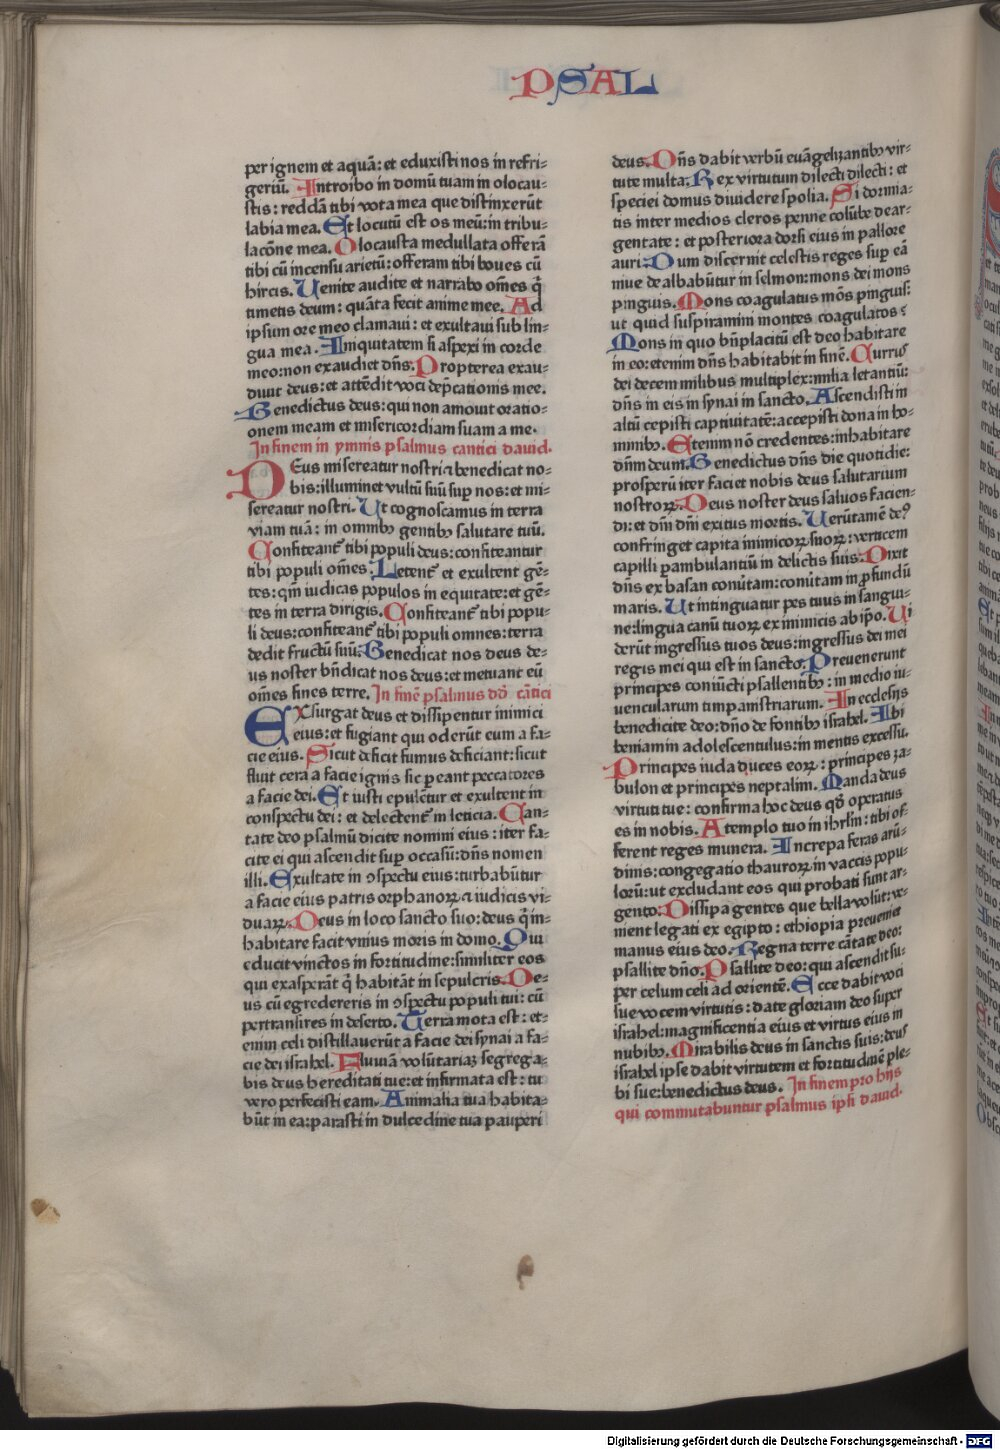 PSAL
per ignem et aquā: et eduxisti nos in refri-
geriū. Introibo in domū tuam in olocau-
stis: reddā tibi vota mea que distinxerūt
labia mea. Et locutū est os meū: in tribu-
lacōne mea. Olocausta medullata offerā
tibi cū incensu arietū: offeram tibi boues cū
hircis. Uenite audite et narrabo om̄es q̄
timetis deum: quāta fecit anime mee. Ad
ipsum ore meo clamaui: et exultaui sub lin-
gua mea. Iniquitatem si aspexi in corde
meo: non exaudiet dn̄s. Propterea exau-
diuit deus: et attēdit voci dep̄cationis mee.
Benedictus deus: qui non amouit oratio-
onem meam et misericordiam suam a me.
In finem in ymnis psalmus cantici dauid.
DEus misereatur nostri ⁊ benedicat no-
bis: illuminet vultū suū sup nos: et mi-
sereatur nostri. Ut cognoscamus in terra
viam tuā: in omnibꝰ gentibꝰ salutare tuū.
Confiteant̄ tibi populi deus: confiteantur
tibi populi om̄es. Letent̄ et exultent gē-
tes: qm̄ iudicas populos in equitate: et gē-
tes in terra dirigis. Confiteant̄ tibi popu-
li deus: confiteant̄ tibi populi omnes: terra
dedit fructū suū. Benedicat nos deus de-
us noster bn̄dicat nos deus: et metuant eū
om̄es fines terre. In finē psalmus dd̄ cātici
EXsurgat deus et dissipentur inimici
eius: et fugiant qui oderūt eum a fa-
cie eius. Sicut deficit fumus deficiant: sicut
fluit cera a facie ignis sic p̱eant peccatores
a facie dei. Et iusti epulētur et exultent in
conspectu dei: et delectent̄ in leticia. Can-
tate deo psalmū dicite nomini eius: iter fa-
cite ei qui ascendit sup̱ occasū: dn̄s nomen
illi. Exultate in ꝯspectu eius: turbabūtur
a facie eius patris orphanoꝝ ⁊ iudicis vi-
duaꝝ. Deus in loco sancto suo: deus q̄ in-
habitare facit vnius moris in domo. Qui
educit vinctos in fortitudine: similiter eos
qui exasperāt q̄ habitāt in sepulcris. De-
us cū egredereris in ꝯspectu populi tui: cū
pertransires in deserto. Terra mota est: et-
enim celi distillauerūt a facie dei synai a fa-
cie dei israhel. Pluuiā volūtariaʒ segrega-
bis deus hereditati tue: et infirmata est: tu
vero perfecisti eam. Animalia tua habita-
būt in ea: parasti in dulcedine tua pauperi
deus. Dn̄s dabit verbū euāgelizantibꝰ vir-
tute multa. Rex virtutum dilecti dilecti: et
speciei domus diuidere spolia. Si dormia-
tis inter medios cleros penne colūbe dear-
gentate: et posteriora dorsi eius in pallore
auri. Dum discernit celestis reges sup̱ eā
niue dealbabūtur in selmon: mons dei mons
pinguis. Mons coagulatus mōs pinguis:
ut quid suspiramini montes coagulatos?
Mons in quo bn̄placitū est deo habitare
in eo: etenim dn̄s habitabit in finē. Currus
dei decem milibus multiplex: milia letantiū:
dn̄s in eis in synai in sancto. Ascendisti in
altū cepisti captiuitatē: accepisti dona in ho-
minibꝰ. Etenim nō credentes: inhabitare
dn̄m deum. Benedictus dn̄s die quotidie:
prosperū iter faciet nobis deus salutarium
nostroꝝ. Deus noster deus saluos facien-
di: et dn̄i dn̄i exitus mortis. Uerūtamē deꝰ
confringet capita inimicoꝝ suoꝝ: verticem
capilli p̱ambulantiū in delictis suis. Dixit
dn̄s ex basan conūtam: conūtam in ꝓfundū
maris. Ut intinguatur pes tuus in sangui-
ne: lingua canū tuoꝝ ex inimicis ab ip̄o. Ui
derūt ingressus tuos deus: ingressus dei mei
regis mei qui est in sancto. Preuenerunt
principes coniūcti psallentibꝰ: in medio iu-
uencularum timpanistriarum. In ecclesijs
benedicite deo: dn̄o de fontibꝰ israhel. Ibi
beniamin adolescentulus: in mentis excessu.
Principes iuda duces eoꝝ: principes za-
bulon et principes neptalim. Manda deus
virtuti tue: confirma hoc deus qd̄ operatus
es in nobis. A templo tuo in ihrl̄m: tibi of-
ferent reges munera. Increpa feras arū-
dinis: congregatio thauroꝝ in vaccis popu-
lorū: ut excludant eos qui probati sunt ar-
gento. Dissipa gentes que bella volūt: ve-
nient legati ex egipto: ethiopia preueniet
manus eius deo. Regna terre cātate deo:
psallite dn̄o. Psallite deo: qui ascendit su-
per celum celi ad orientē. Ecce dabit voci
sue vocem virtutis: date gloriam deo super
israhel: magnificentia eius et virtus eius in
nubibꝰ. Mirabilis deus in sanctis suis: deus
israhel ipse dabit virtutem et fortitudinē ple-
bi sue: benedictus deus. In finem pro hijs
qui commutabuntur psalmus ipsi dauid.
Digitalisierung gefördert durch die Deutsche Forschungsgemeinschaft - DFG